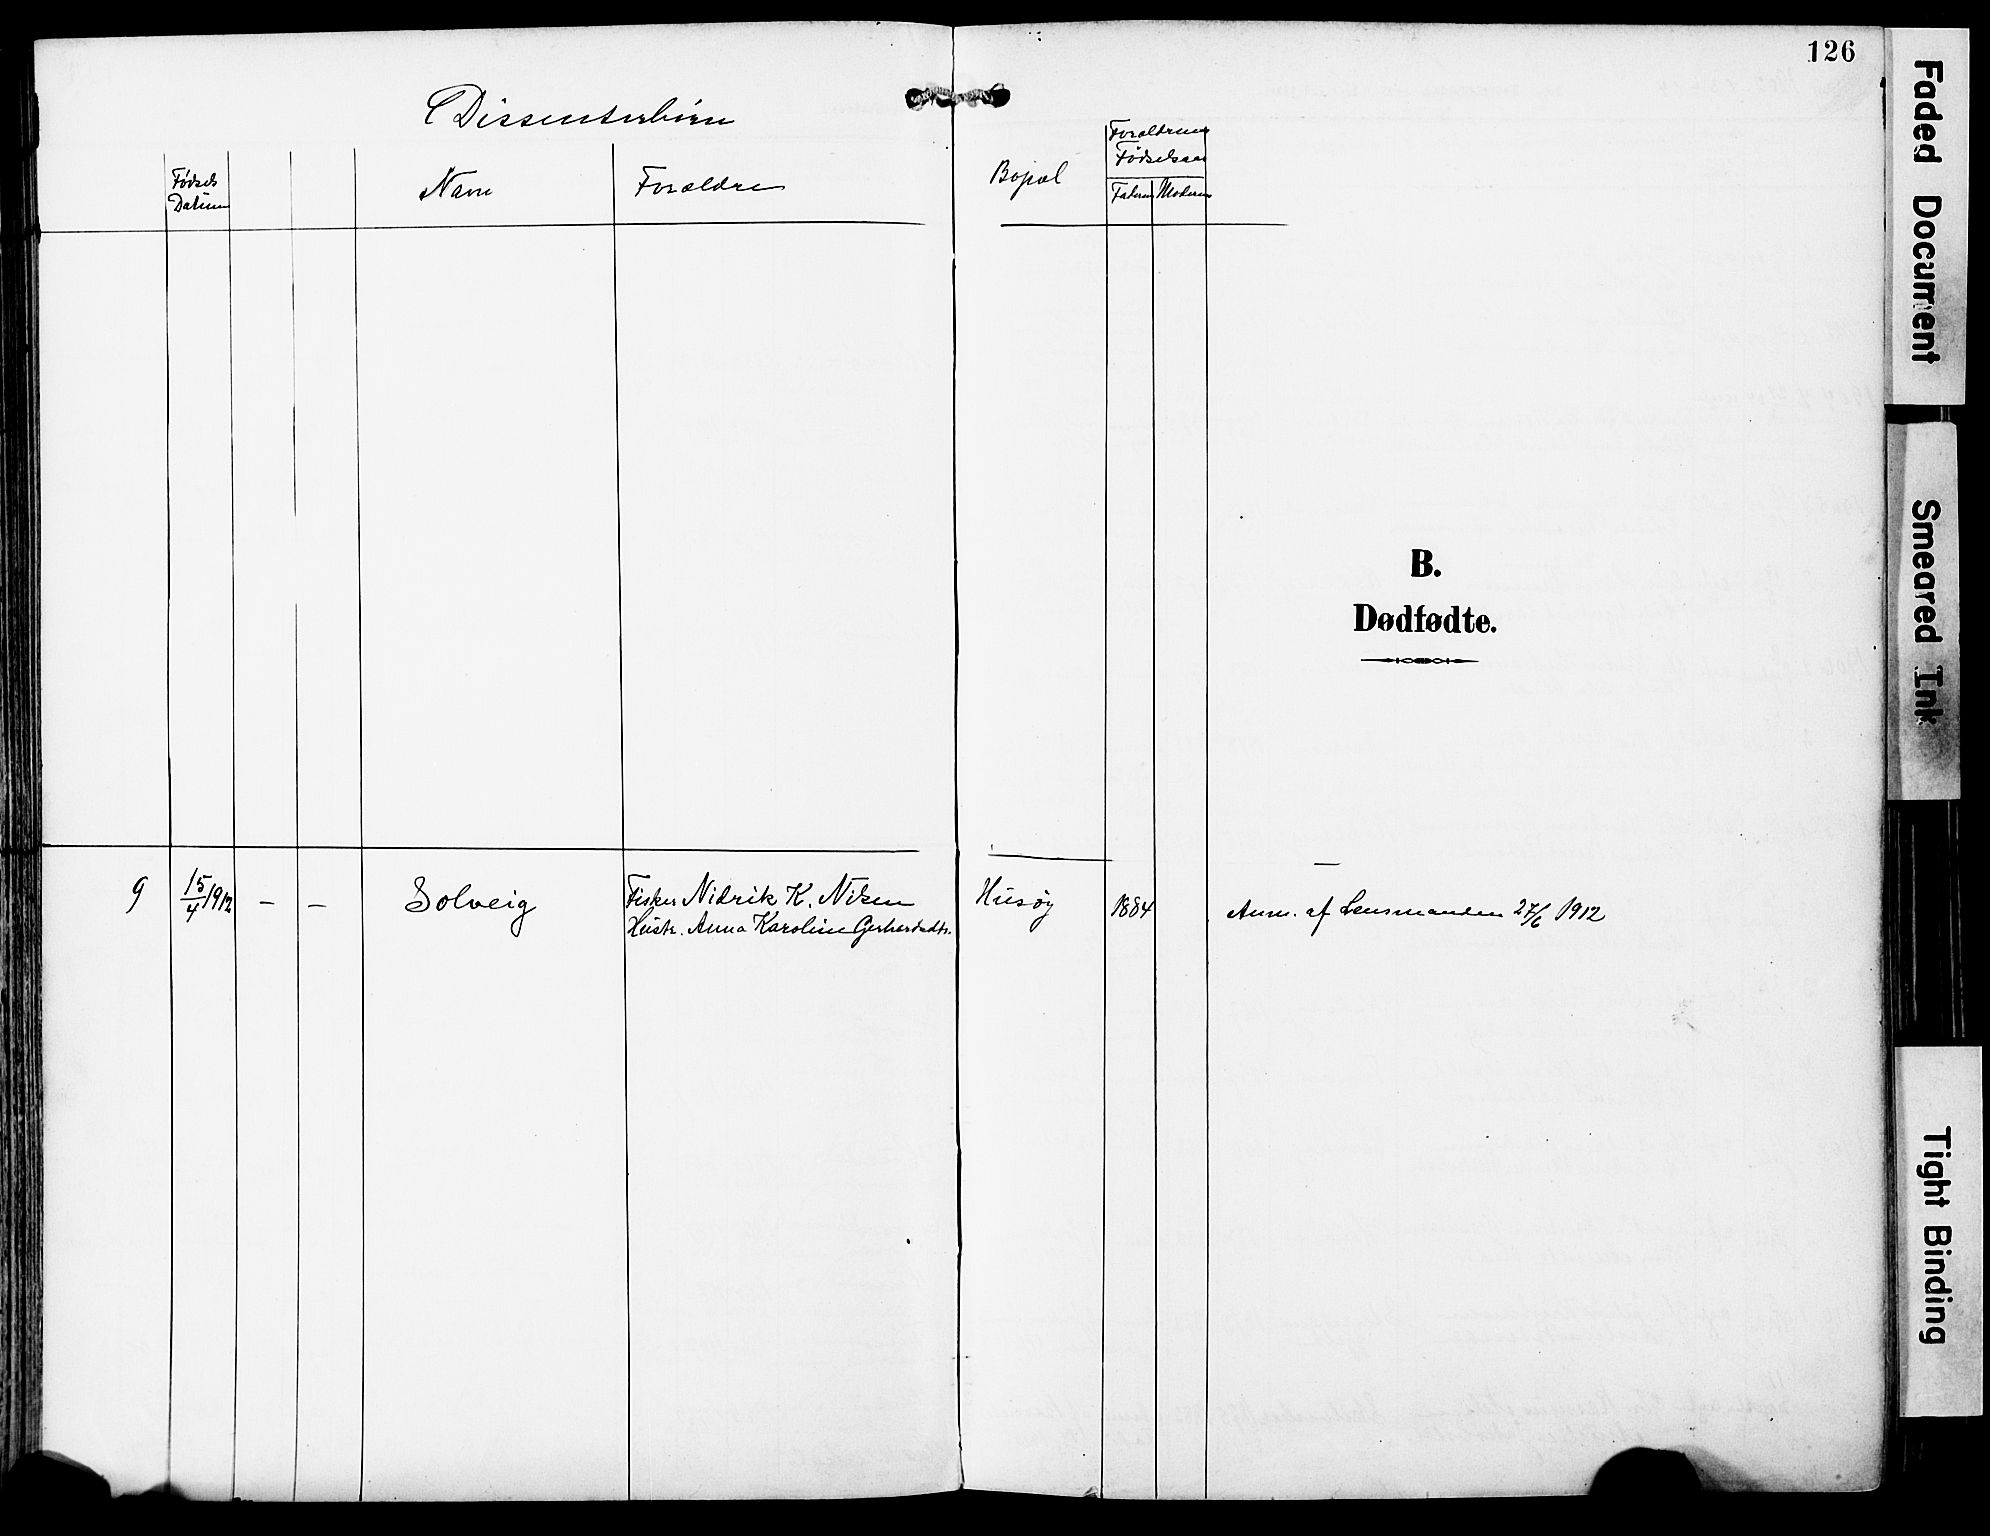 126
Dissenterbörn
Fødsels Datum
Navn
Forældre
Bopæl
Forældrenes Fødselsaar
Faderen Moderen
B.
Dødfødte.
9 15/4 1912 — — Solveig
Fisker Nidrik K. Nilsen
Hustr. Anna Karoline Gerhardsdtr.
Husøy 1884
Anm. af Lensmanden 27/6 1912
Faded Document
Smeared Ink
Tight Binding